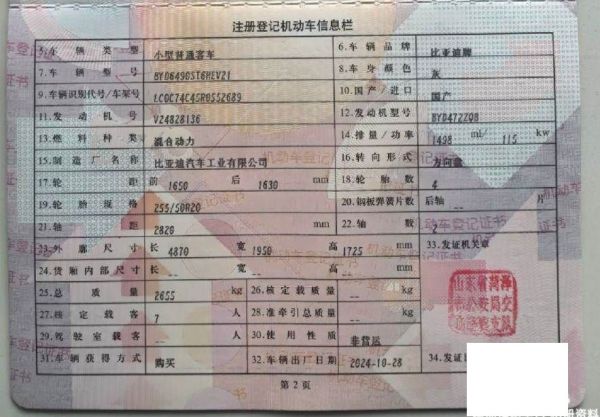 注册登记机动车信息栏
5.车辆类型 小型普通客车 6.车辆品牌 比亚迪牌
7.车辆型号 BYD6490ST6HEV21 8.车身颜色 灰
9.车辆识别代号/车架号 LC0C74C45R0552689 10.国产/进口 国产
11.发动机号 V24828136 12.发动机型号 BYD472ZQB
13.燃料种类 混合动力 14.排量/功率 1498 ml/ 115 kw
15.制造厂名称 比亚迪汽车工业有限公司 16.转向形式 方向盘
17.轮距 前 1650 后 1630 mm 18.轮胎数 4
19.轮胎规格 255/50R20 20.钢板弹簧片数 后轴 -- 片
21.轴距 2820 mm 22.轴数 2
23.外廓尺寸 长 4870 宽 1950 高 1725 mm 33.发证机关章
24.货厢内部尺寸 长 -- 宽 -- 高 -- mm
25.总质量 2655 kg 26.核定载质量 -- kg
27.核定载客 7 人 28.准牵引总质量 -- kg
29.驾驶室载客 -- 人 30.使用性质 非营运
31.车辆获得方式 购买 32.车辆出厂日期 2024-10-28 34.发证日
山东省菏泽
市公安局交
第2页